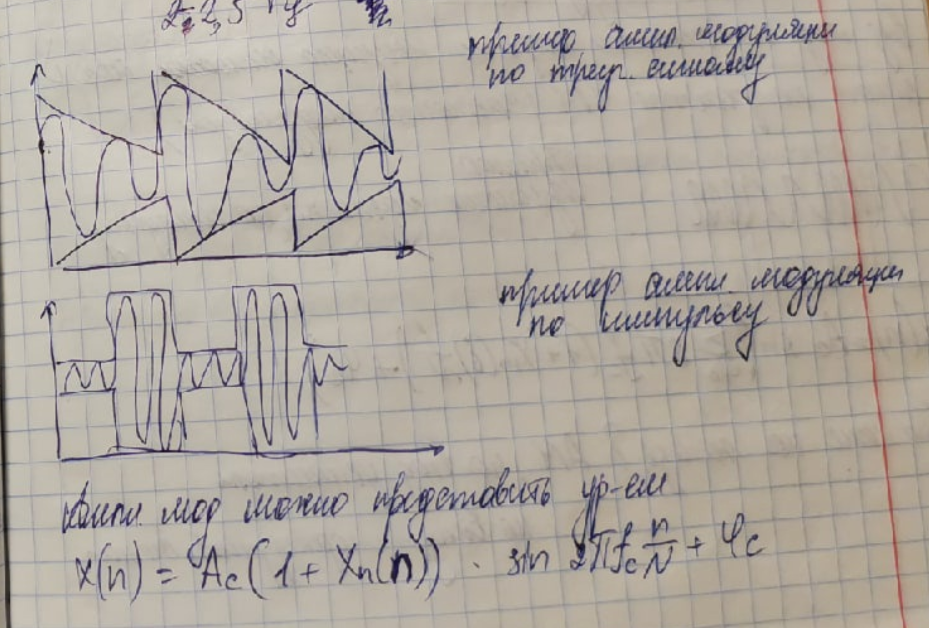 пример ампл. модуляции
по треуг. сигналу
пример ампл. модуляции
по импульсу
Ампл. мод можно представить ур-ем
x(n) = Ac(1 + Xn(n)) · sin 2πfc n/N + φc